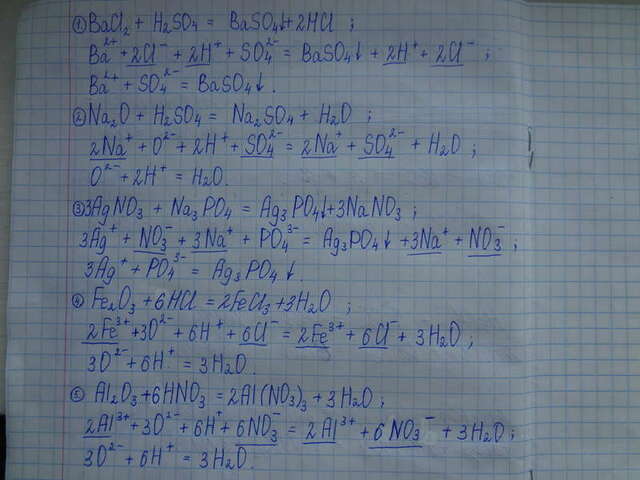 ① BaCl₂ + H₂SO₄ = BaSO₄↓ + 2HCl ;
Ba²⁺ + 2Cl⁻ + 2H⁺ + SO₄²⁻ = BaSO₄↓ + 2H⁺ + 2Cl⁻ ;
Ba²⁺ + SO₄²⁻ = BaSO₄↓ .
② Na₂O + H₂SO₄ = Na₂SO₄ + H₂O ;
2Na⁺ + O²⁻ + 2H⁺ + SO₄²⁻ = 2Na⁺ + SO₄²⁻ + H₂O ;
O²⁻ + 2H⁺ = H₂O.
③ 3AgNO₃ + Na₃PO₄ = Ag₃PO₄↓ + 3NaNO₃ ;
3Ag⁺ + NO₃⁻ + 3Na⁺ + PO₄³⁻ = Ag₃PO₄↓ + 3Na⁺ + NO₃⁻ ;
3Ag⁺ + PO₄³⁻ = Ag₃PO₄↓ .
④ Fe₂O₃ + 6HCl = 2FeCl₃ + 3H₂O ;
2Fe³⁺ + 3O²⁻ + 6H⁺ + 6Cl⁻ = 2Fe³⁺ + 6Cl⁻ + 3H₂O ;
3O²⁻ + 6H⁺ = 3H₂O.
⑤ Al₂O₃ + 6HNO₃ = 2Al(NO₃)₃ + 3H₂O ;
2Al³⁺ + 3O²⁻ + 6H⁺ + 6NO₃⁻ = 2Al³⁺ + 6NO₃⁻ + 3H₂O ;
3O²⁻ + 6H⁺ = 3H₂O.